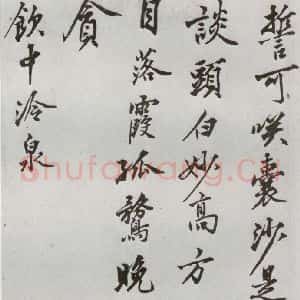 誓可咲囊沙是
談頭白妙高方
目落霞孤鶩晚
貪
飲中冷泉
Shufawang.CN